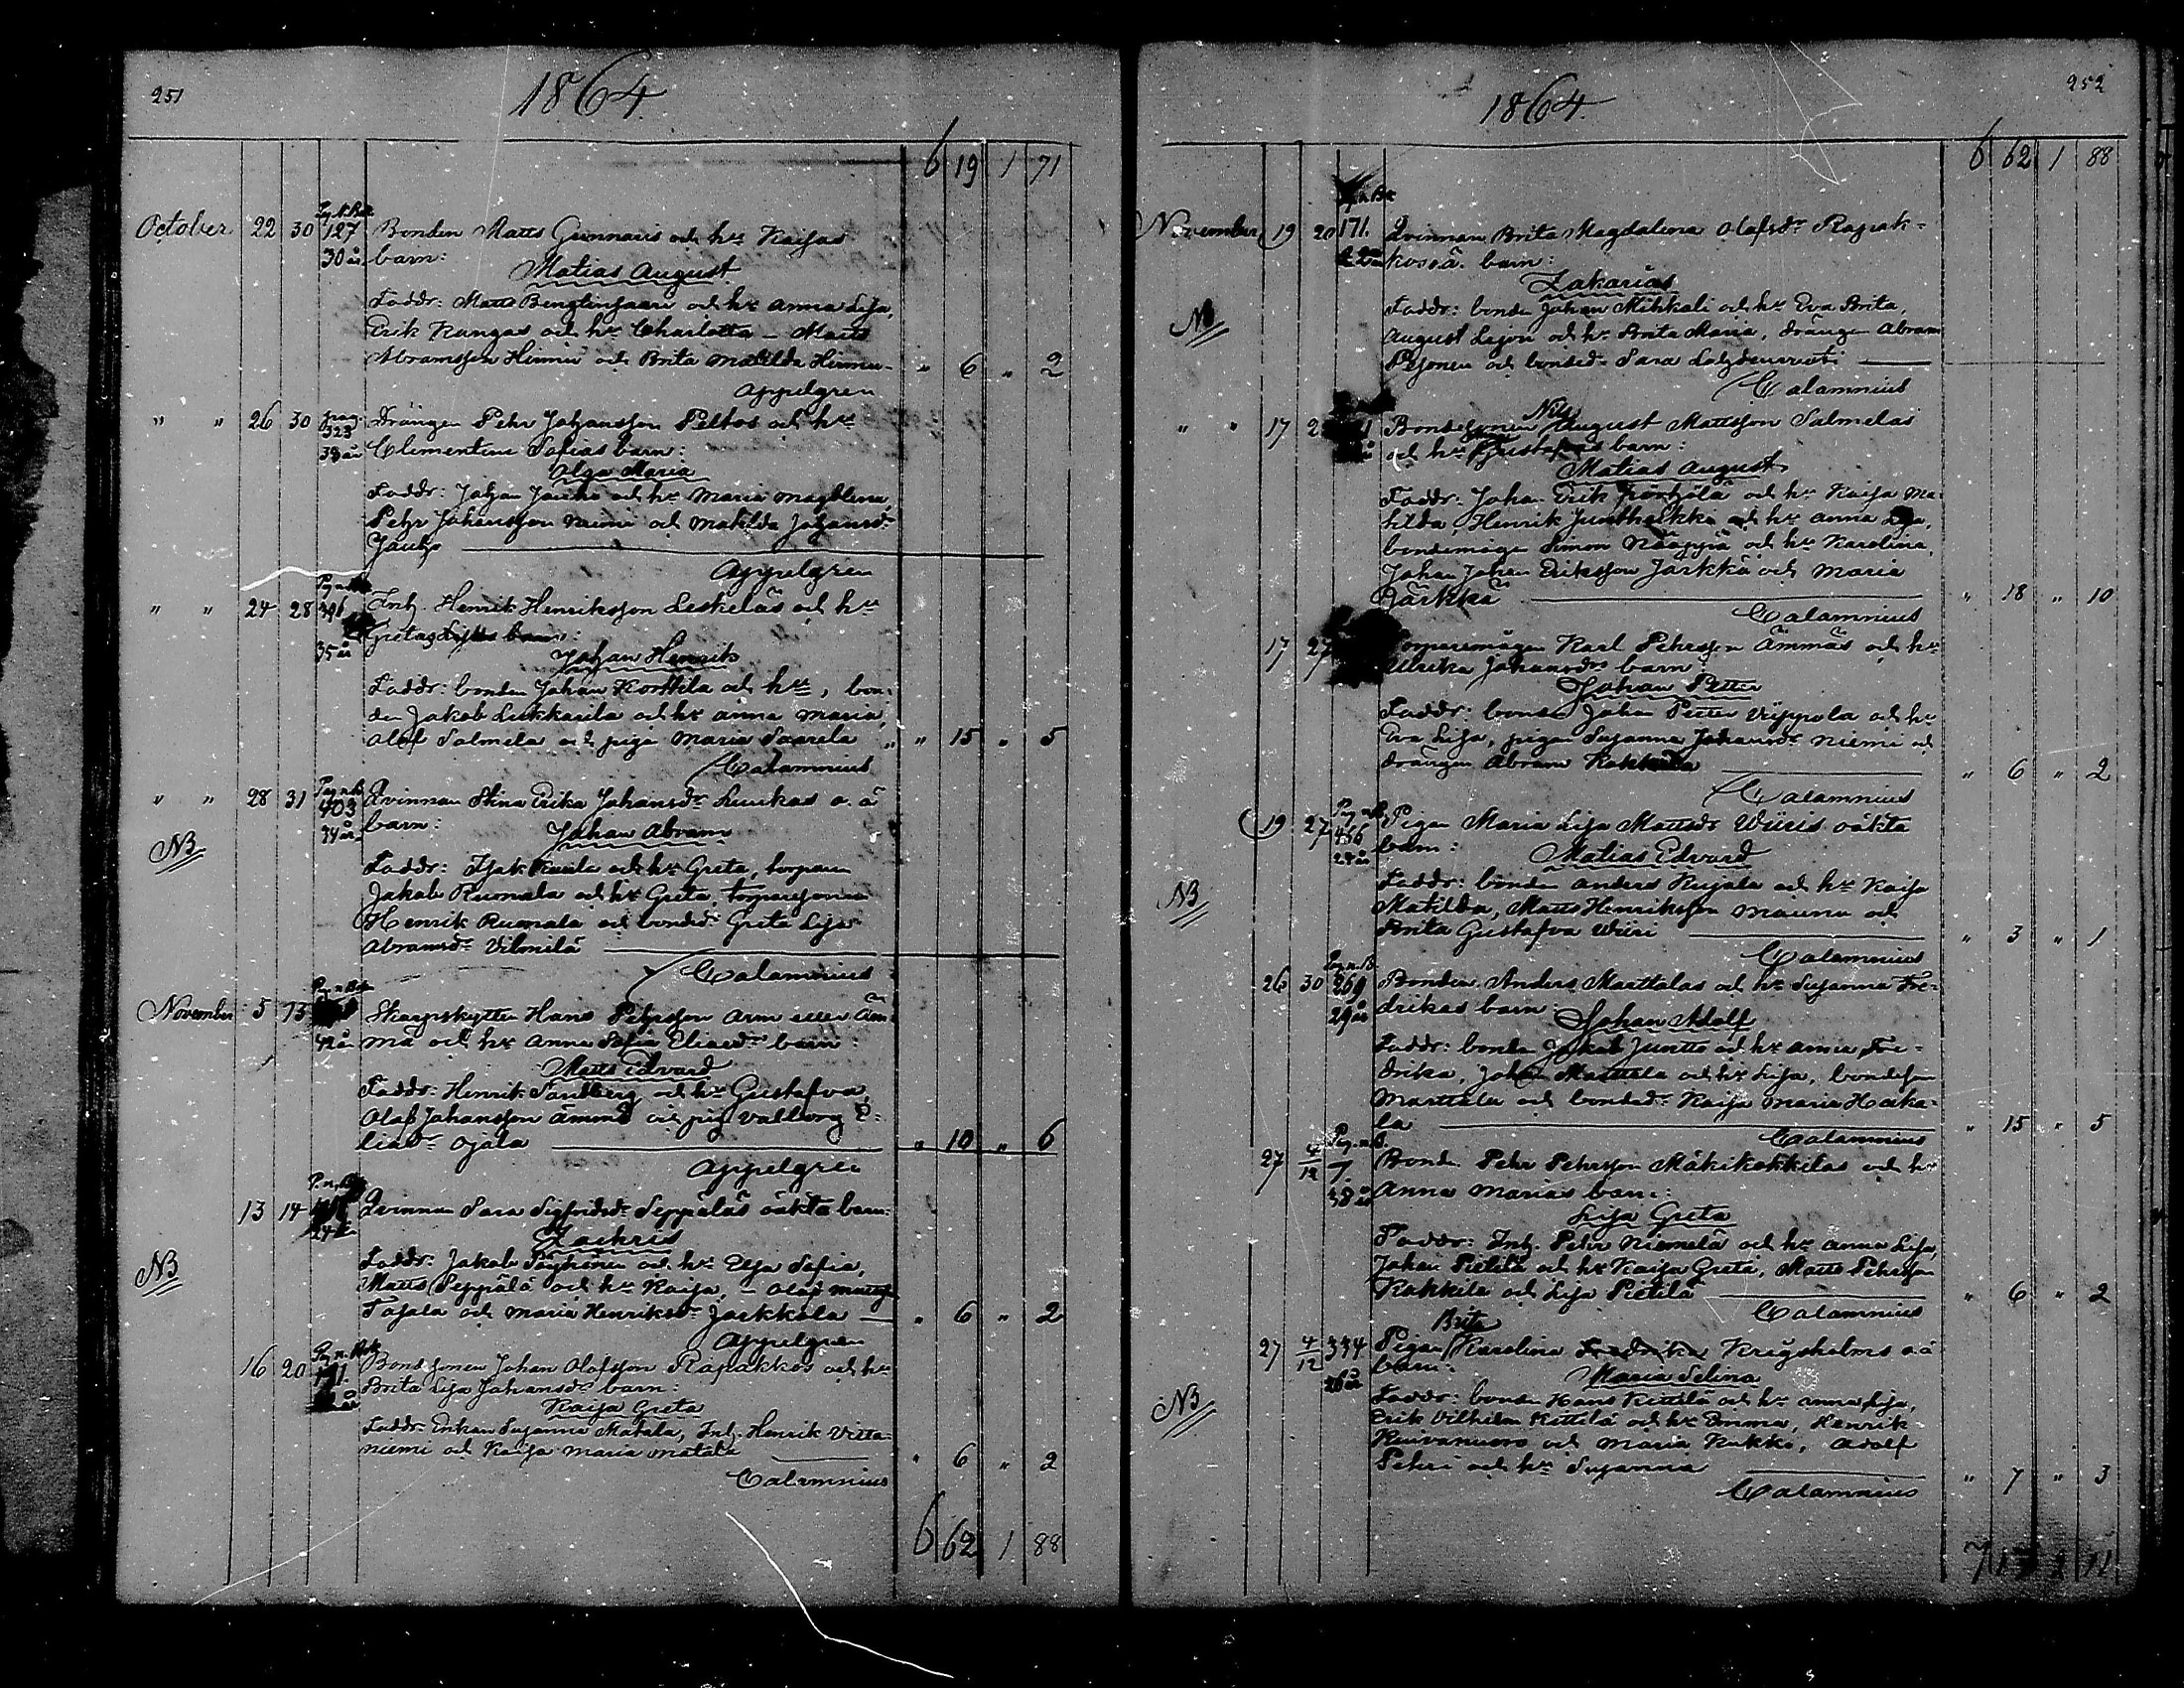 251
1864.
6 19 1 71
October 22 30 127 Bonden Matts Gunnaris och hs Kaisas
30 år barn:
Matias August
Faddr: Matts Benglinsaari och hs Anna Lisa,
Erik Kangas och hs Charlotta – Matts
Abramsson Hirmu och Brita Matilda Hirmu – " 6 " 2
Appelgren
" " 26 30 pag. 323 Drängen Pehr Johansson Peltos och hs
38 år Clementina Sofias barn:
Olga Maria
Faddr: Johan Jauho och hs Maria Magdlena,
Pehr Johansson Niemi och Matilda Johansdr
Jauho
Appelgren
" " 24 28 Inh. Henrik Henriksson Leskeläs och hs
Greta barn:
35 år Johan Henrik
Faddr: bonden Johan Korttila och hs, bon-
den Jakob Lukkarila och hs Anna Maria,
Olof Salmela och piga Maria Saarela " " 15 " 5
Calamnius
" " 28 31 Pag. n.B. 403 Qvinnan Stina Erika Johansdr o.ä
34 år barn:
Johan Abram
NB
Faddr: Isak och hs Greta, torparen
Jakob Rumala och hs Greta, torparesonen
Henrik Rumala och bondedr Greta Lisa
Abramsdr Vilmilä
Calamnius
November 5 13 Skarpskytten Hans Pehrsson Arm eller Äm-
42 år mä och hs Anna Sofia Eliaedr barn:
Matts Edvard
Faddr: Henrik Sandberg och hs Gustafva,
Olof Johansson Ämmä och pig. Valborg E-
liadr Ojala " 10 " 6
Appelgren
13 14 Qvinnan Sara Sigfridsdr Seppäläs oäkta barn:
Zachris
NB
Faddr: Jakob Pöyhönen och hs Elsa Sofia,
Matts Seppälä och hs Kaisa, – Olof
Tasala och Maria Henriksdr Jarkkola – " 6 " 2
Appelgren
16 20 Bondesonen Johan Olofsson Rapakkos och hs
Brita Lisa Johansdrs barn:
Kaisa Greta
Faddr: Enkan Susanna Matala, Inh. Henrik Vitta-
niemi och Kaisa Maria Matala " 6 " 2
Calamnius
6 62 1 88
252
1864.
6 62 1 88
November 19 20 171. Qvinnan Brita Magdalena Olofsdr Rapak-
22 år kos o.ä. barn:
Zakarias
NB
Faddr: bonden Johan Mihkali och hs Eva Brita,
August Lesjon och hs Brita Maria, drängen Abram
Pesonen och bondedr Sara
Calamnius
" " 17 Bondesonen Nils August Mattsson Salmelas
och hs barn:
Matias August
Faddr: Johan Erik Pörhölä och hs Kaisa Ma-
tilda, Henrik Junttheikki och hs Anna Lisa,
bondemågen Simon Näppä och hs Karolina,
Johan Johan Eriksson Jarkkä och Maria
Jarkkä " 18 " 10
Calamnius
17 27 Torparemågen Karl Pehrsson Ämmäs och hs
Ulrika Johansdrs barn:
Johan Petter
Faddr: bonden Johan Petter Vippola och hs
Eva Lisa, pigan Susanna Johansdr Niemi och
drängen Abram Kakkila " 6 " 2
Calamnius
19 27 Pag. n.B. 456 Pigan Maria Lisa Mattsdr Wiiris oäkta
24 år barn:
Matias Edvard
NB
Faddr: bonden Anders Kujala och hs Kaisa
Matilda, Matts Henriksson Maunu och
Brita Gustafva Wiiri " 3 " 1
Calamnius
26 30 Pag. n.B. 269 Bonden Anders Marttalas och hs Susanna Fre-
29 år drikas barn:
Johan Adolf
Faddr: bonden Jakob Juntto och hs Anna Fre-
drika, Johan Marttala och hs Lisa, bondeson
Marttala och bondedr Kaisa Maria Haka-
la " 15 " 5
Calamnius
27 4/12 Pag. n.B. 7. Bonden Pehr Pehrsson Mäkikokkilas och hs
38 år Anna Marias barn:
Lisa Greta
Faddr: Inh. Pehr Niemelä och hs Anna Lisa,
Johan Pietilä och hs Kaisa Greta, Matts Pehrsson
Kokkila och Lisa Pietilä " 6 " 2
Calamnius
27 4/12 334 Pigan Brita Karolina Fredrika Krigsholms o.ä
26 år barn:
Maria Selina
NB
Faddr: bonden Hans Kittilä och hs Anna Lisa,
Erik Vilhelm Kittilä och hs Emma, Henrik
Kuivanuoro och Maria Kukko, Adolf
Pehri och hs Susanna " 7 " 3
Calamnius
7 17 2 11